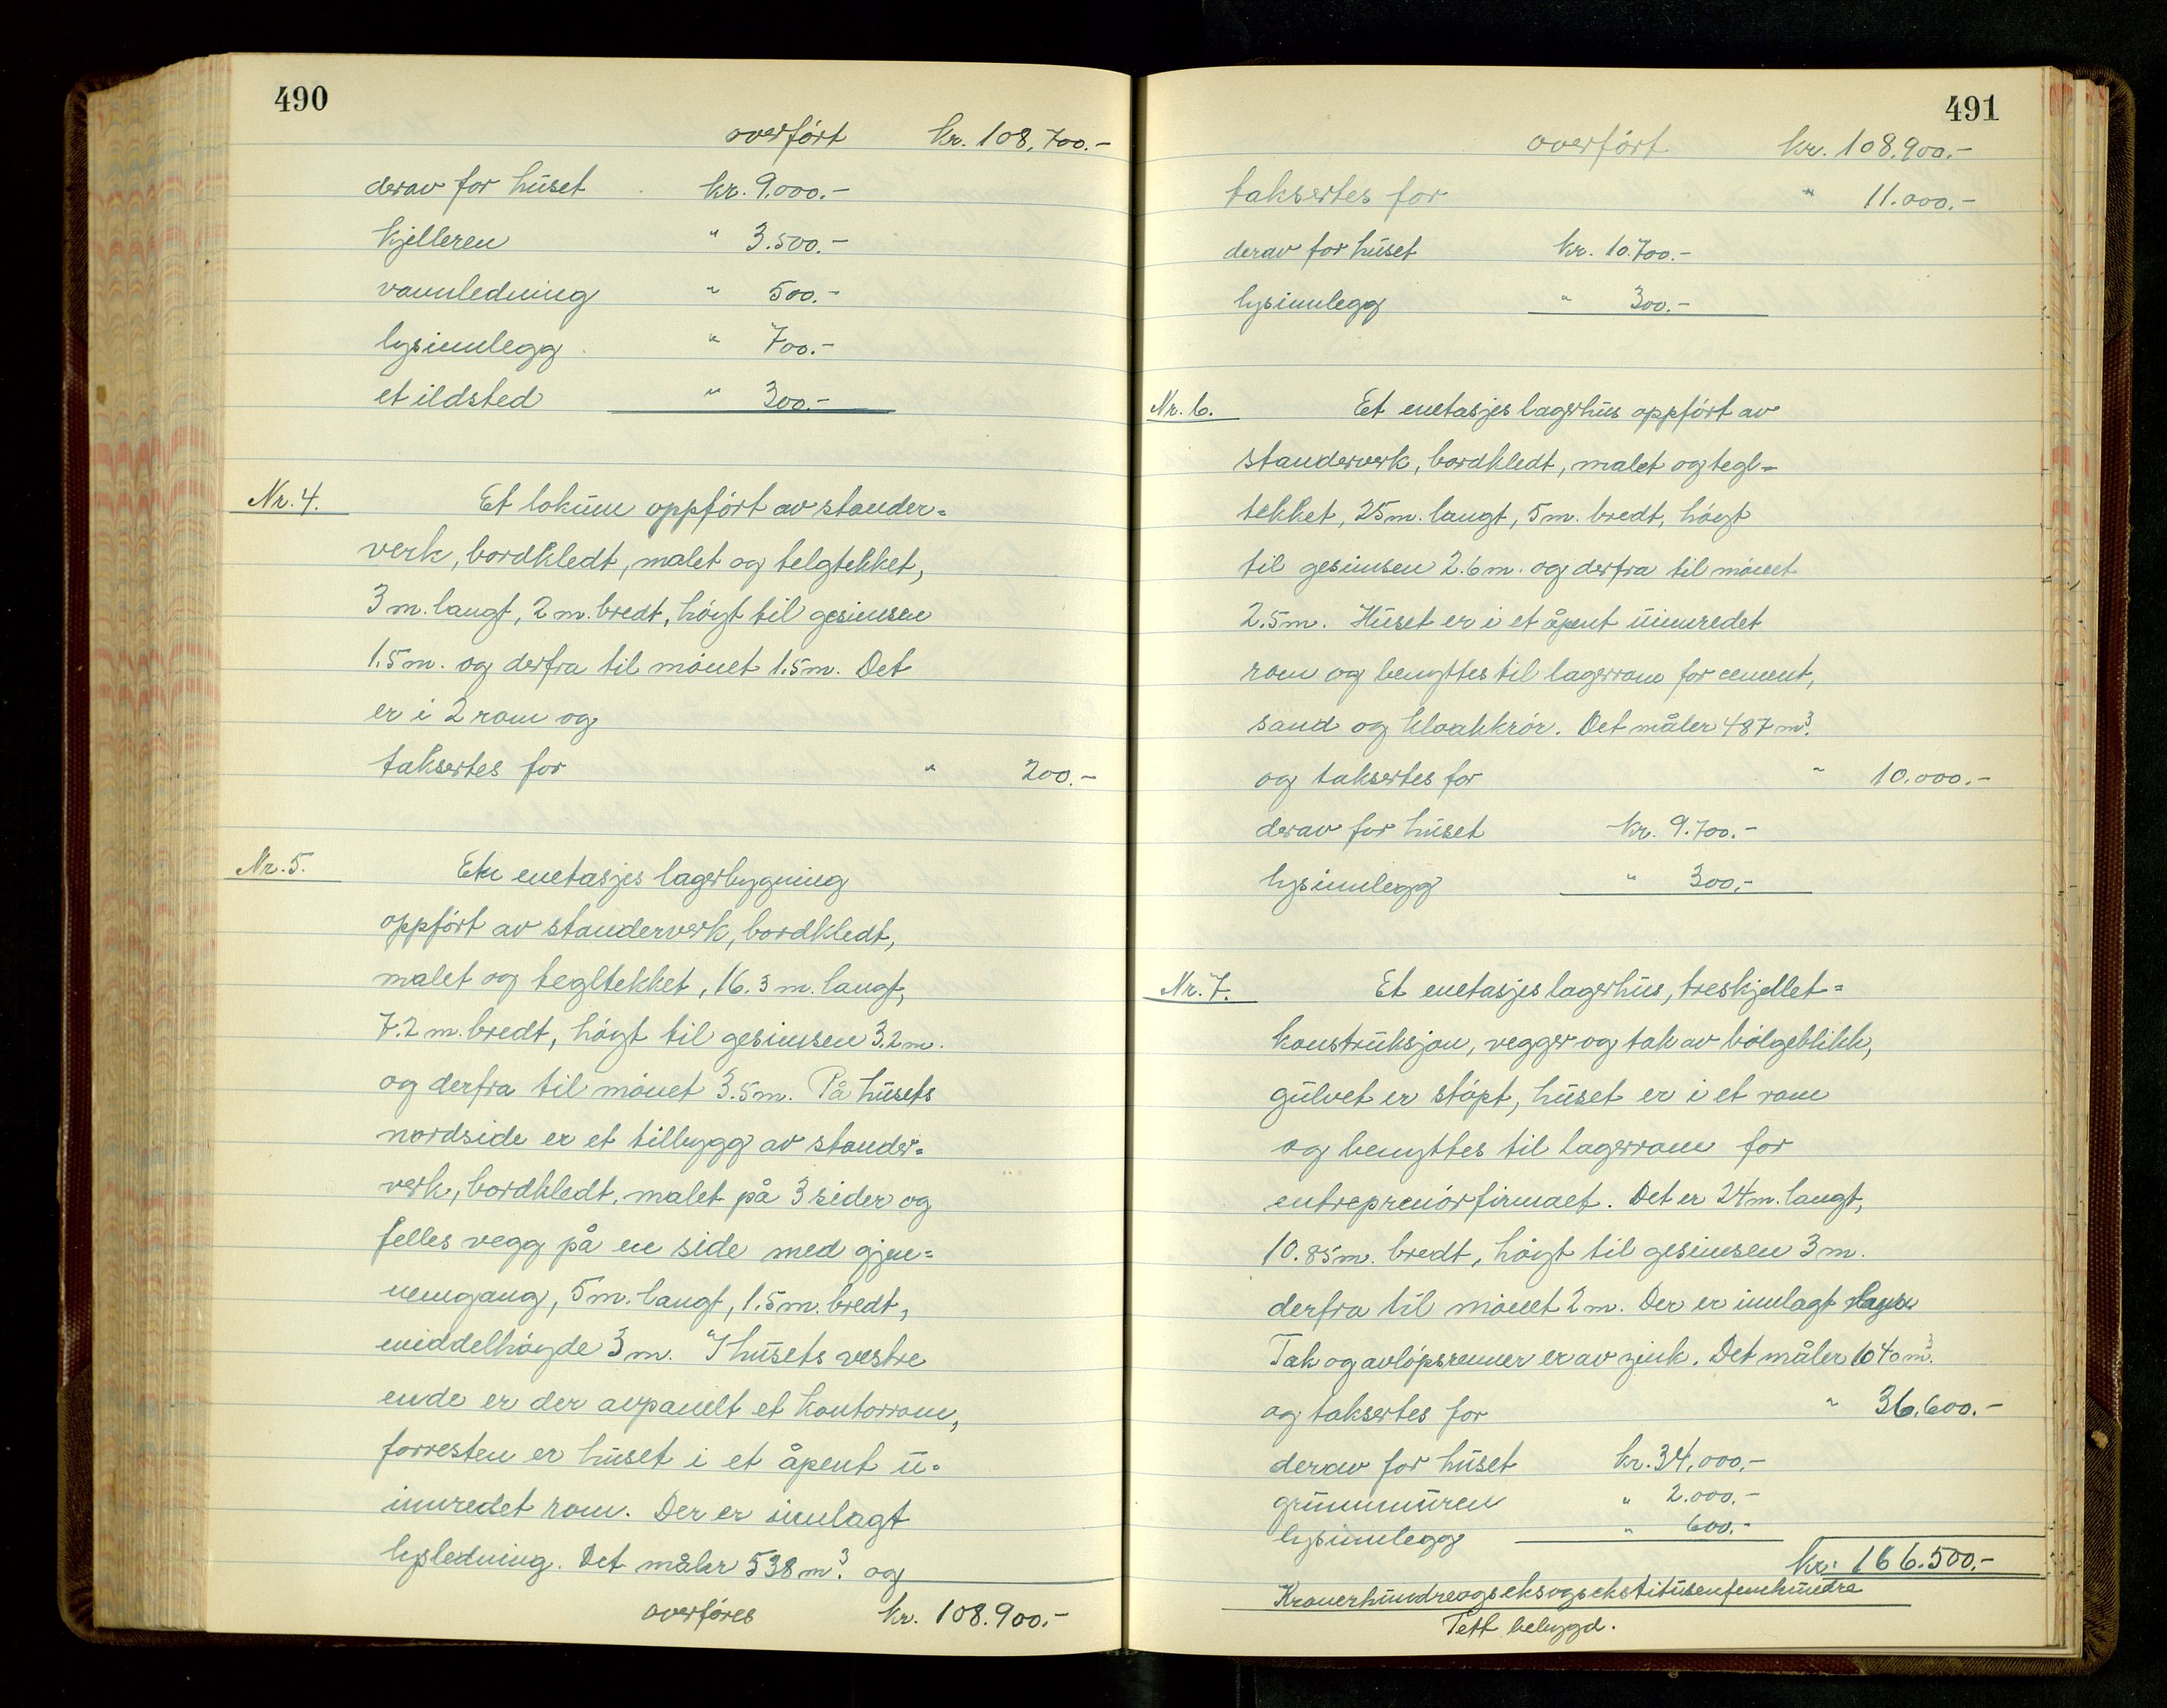 490
overført kr. 108.700.-
derav for huset kr. 9.000.-
kjelleren " 3.500.-
vannledning " 500.-
lysinnlegg " 700.-
et ildsted " 300.-
Nr. 4. Et lokum oppført av stender=
verk, bordkledt, malet og telgtekket,
3 m. langt, 2 m. bredt, høgt til gesimsen
1.5 m. og derfra til mønet 1.5 m. Det
er i 2 rom og
taksertes for " 200.-
Nr. 5. En enetasjes lagerbygning
oppført av stenderverk, bordkledt,
malet og tegltekket, 16.3 m. langt,
7.2 m. bredt, høgt til gesimsen 3.2 m.
og derfra til mønet 3.5 m. På husets
nordside er et tilbygg av stender=
verk, bordkledt, malet på 3 sider og
felles vegg på en side med gjen=
nemgang, 5 m. langt, 1.5 m. bredt,
middelhøgde 3 m. I husets vestre
ende er der avpanelt et kontorrom,
forresten er huset i et åpent u=
innredet rom. Der er innlagt
lysledning. Det måler 538 m³. og
overføres kr. 108.900.-
491
overført kr. 108.900.-
taksertes for " 11.000.-
derav for huset kr. 10.700.-
lysinnlegg " 300.-
Nr. 6. Et enetasjes lagerhus oppført av
stenderverk, bordkledt, malet og tegl=
tekket, 25 m. langt, 5 m. bredt, høgt
til gesimsen 2.6 m. og derfra til mønet
2.5 m. Huset er i et åpent uinnredet
rom og benyttes til lagerrom for cement,
sand og kloakkrør. Det måler 487 m³.
og taksertes for " 10.000.-
derav for huset kr. 9.700.-
lysinnlegg " 300.-
Nr. 7. Et enetasjes lagerhus, treskjellet=
konstruksjon, vegger og tak av bølgeblikk,
gulvet er støpt, huset er i et rom
og benyttes til lagerrom for
entreprenørfirmaet. Det er 24 m. langt,
10.85 m. bredt, høgt til gesimsen 3 m.
derfra til mønet 2 m. Der er innlagt
Tak og avløpsrenner er av zink. Det måler 1040 m³.
og taksertes for " 36.600.-
derav for huset kr. 34.000.-
grunnmuren " 2.000.-
lysinnlegg " 600.-
kr. 166.500.-
Kronerhundreogseksogsekstitusenfemhundre
Tett bebygd.